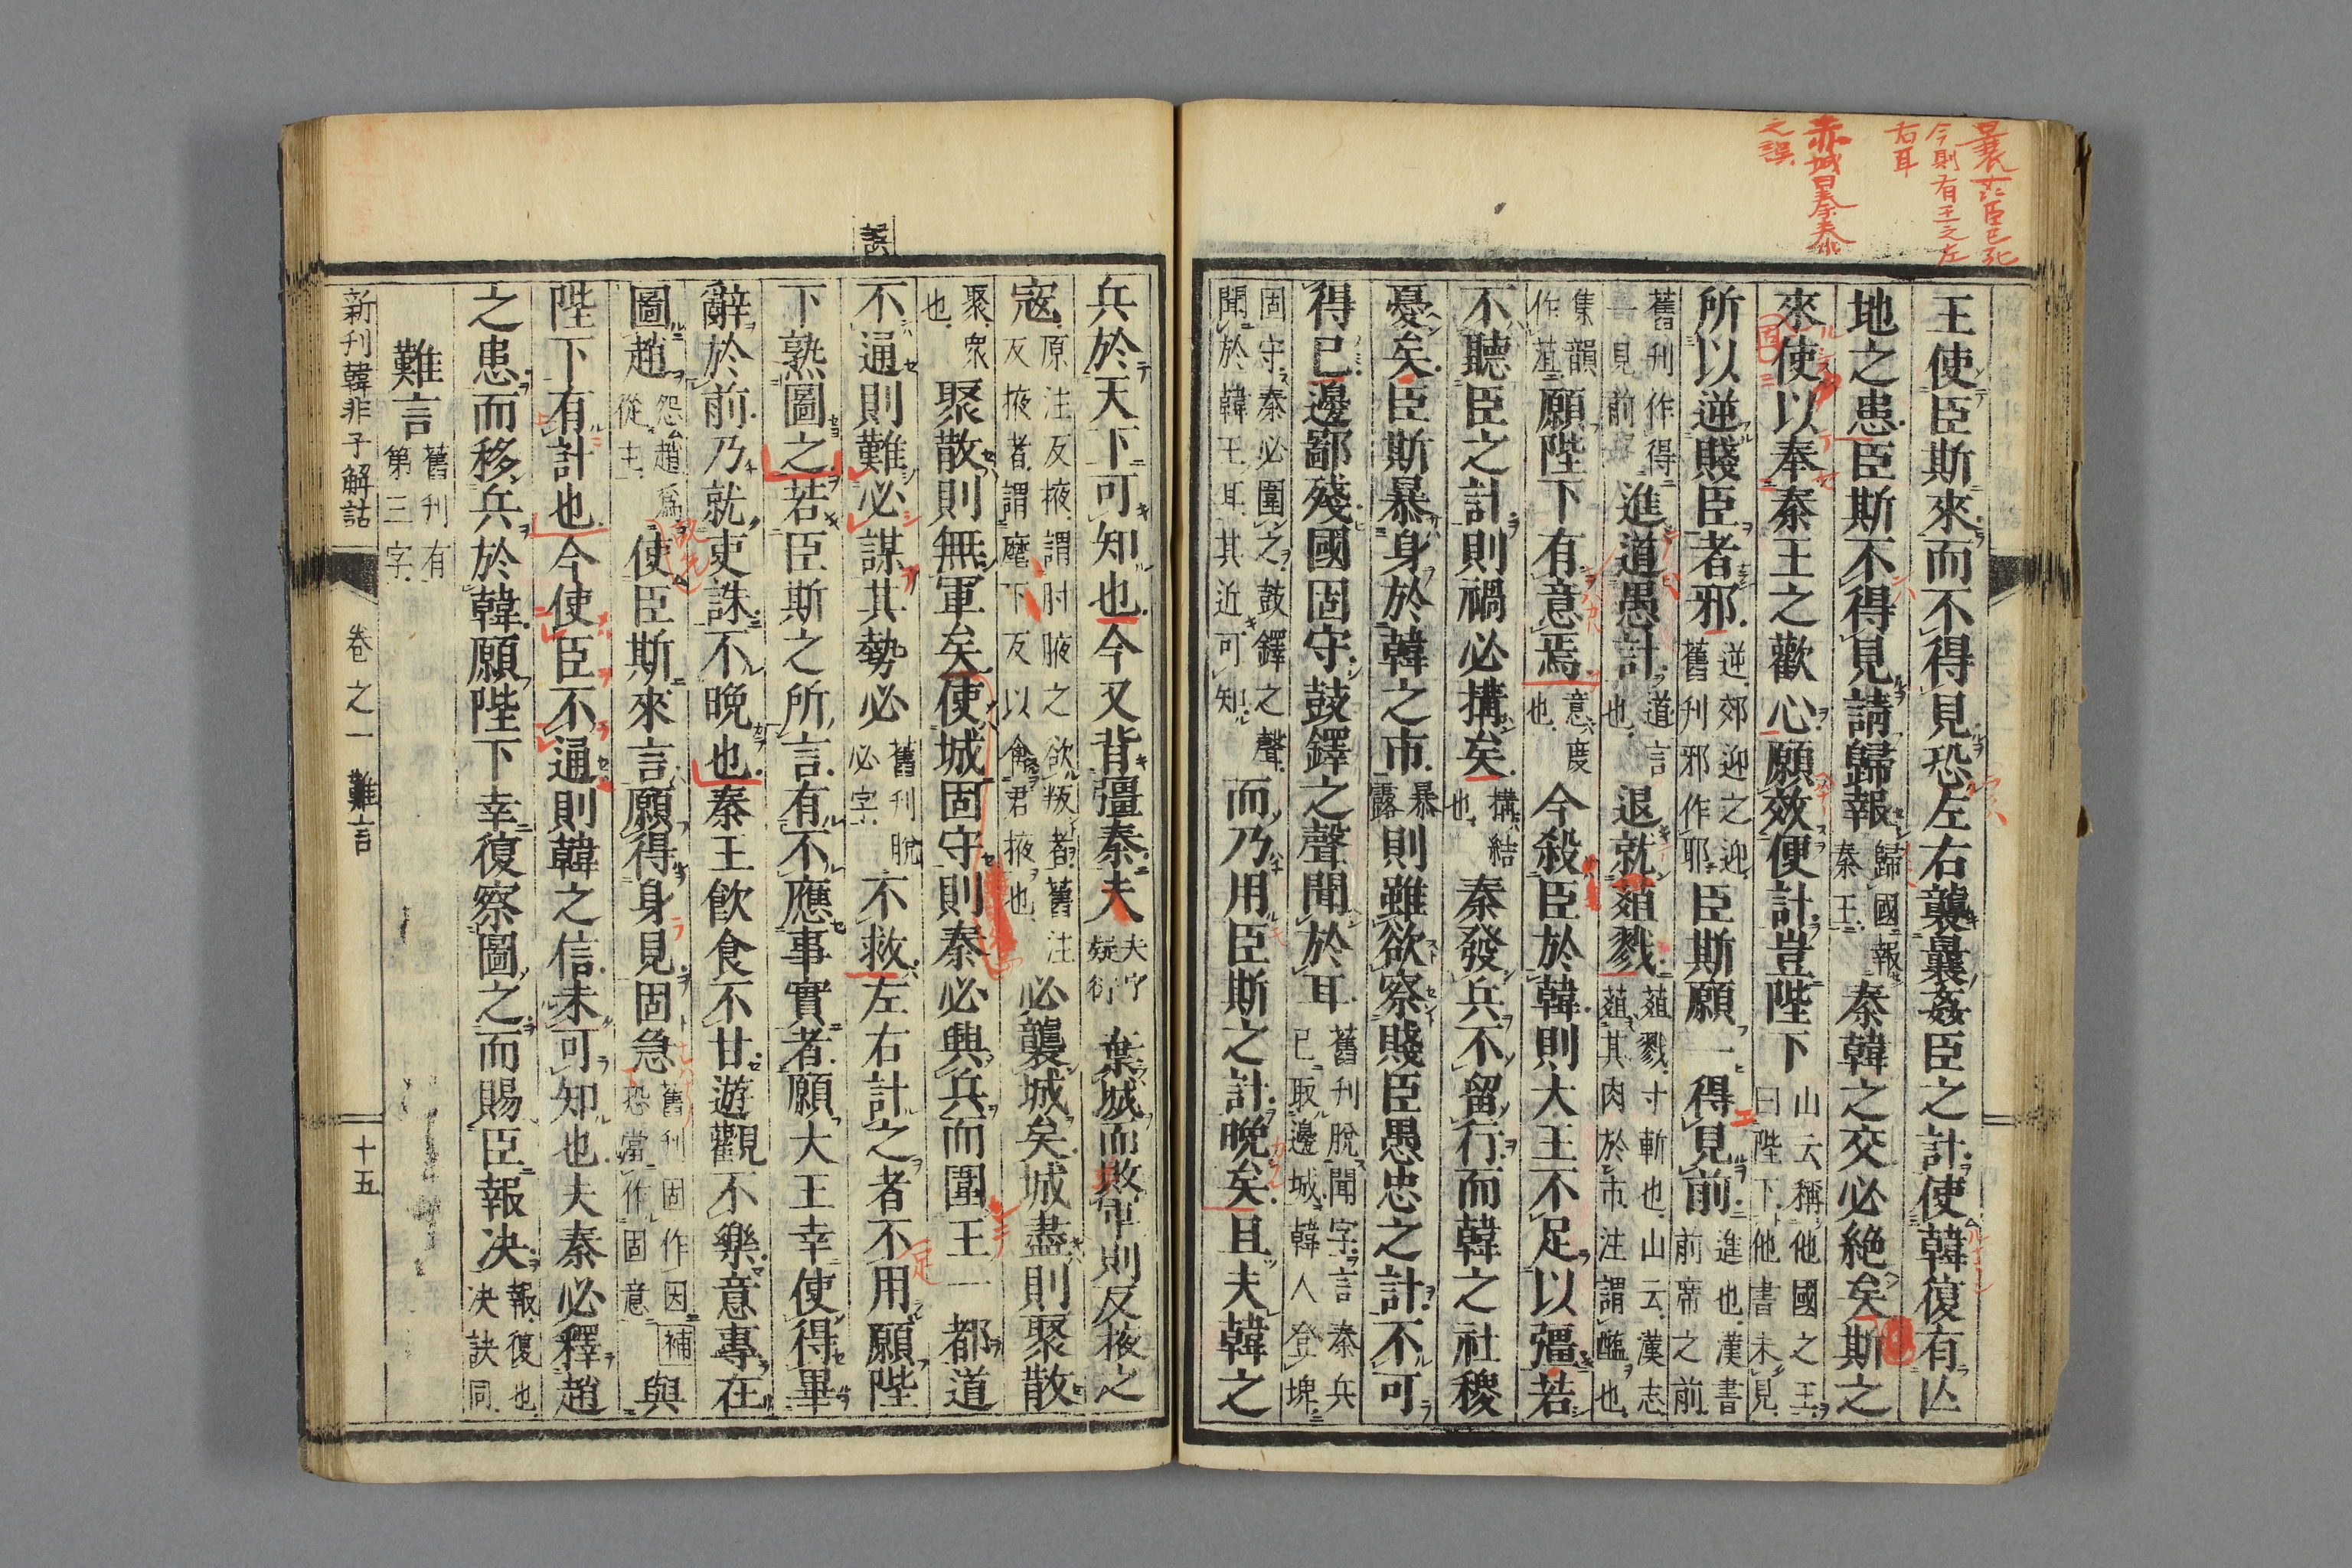 曩姦臣已死
今則有王之左
右耳
赤城曰秦秦北
之誤
王使臣斯來而不得見恐左右襲曩姦臣之計使韓復有亾
地之患臣斯不得見請歸報歸國報秦王秦韓之交必絶矣斯之
來使以奉秦王之歡心願效便計豈陛下山云稱他國之王曰陛下他書未見
所以逆賤臣者邪逆郊迎之迎舊刊邪作耶臣斯願一得見前進也漢書前席之前
舊刊作得見前進道愚計道言也退就葅戮葅戮寸斬也山云漢志葅其肉於市注謂醢也
集韻作葅願陛下有意焉意度也今殺臣於韓則大王不足以彊若
不聽臣之計則禍必搆矣搆結也秦發兵不留行而韓之社稷
憂矣臣斯暴身於韓之市暴露則雖欲察賤臣愚忠之計不可
得已邊鄙殘國固守鼓鐸之聲聞於耳舊刊脫聞字言秦兵已取邊城韓人登埤
固守秦必圍之鼓鐸之聲聞於韓王耳其近可知而乃用臣斯之計晚矣且夫韓之
誤
兵於天下可知也今又背彊秦夫夫字疑衍棄城而敗軍則反掖之
寇原注反掖謂肘腋之欲叛者舊注反掖者謂麾下反以禽君掖也必襲城矣城盡則聚散
聚衆也聚散則無軍矣使城固守則秦必興兵而圍王一都道
不通則難必謀其勢必舊刊脫必字不救左右計之者不用願陛
下熟圖之若臣斯之所言有不應事實者願大王幸使得畢
辭於前乃就吏誅不晚也秦王飲食不甘遊觀不樂意專在
圖趙怨趙爲從主使臣斯來言願得身見固急舊刊固作因恐當作固意補與
陛下有計也今使臣不通則韓之信未可知也夫秦必釋趙
之患而移兵於韓願陛下幸復察圖之而賜臣報决報復也决訣同
難言舊刊有第三字
新刊韓非子解詁 卷之一 難言 十五